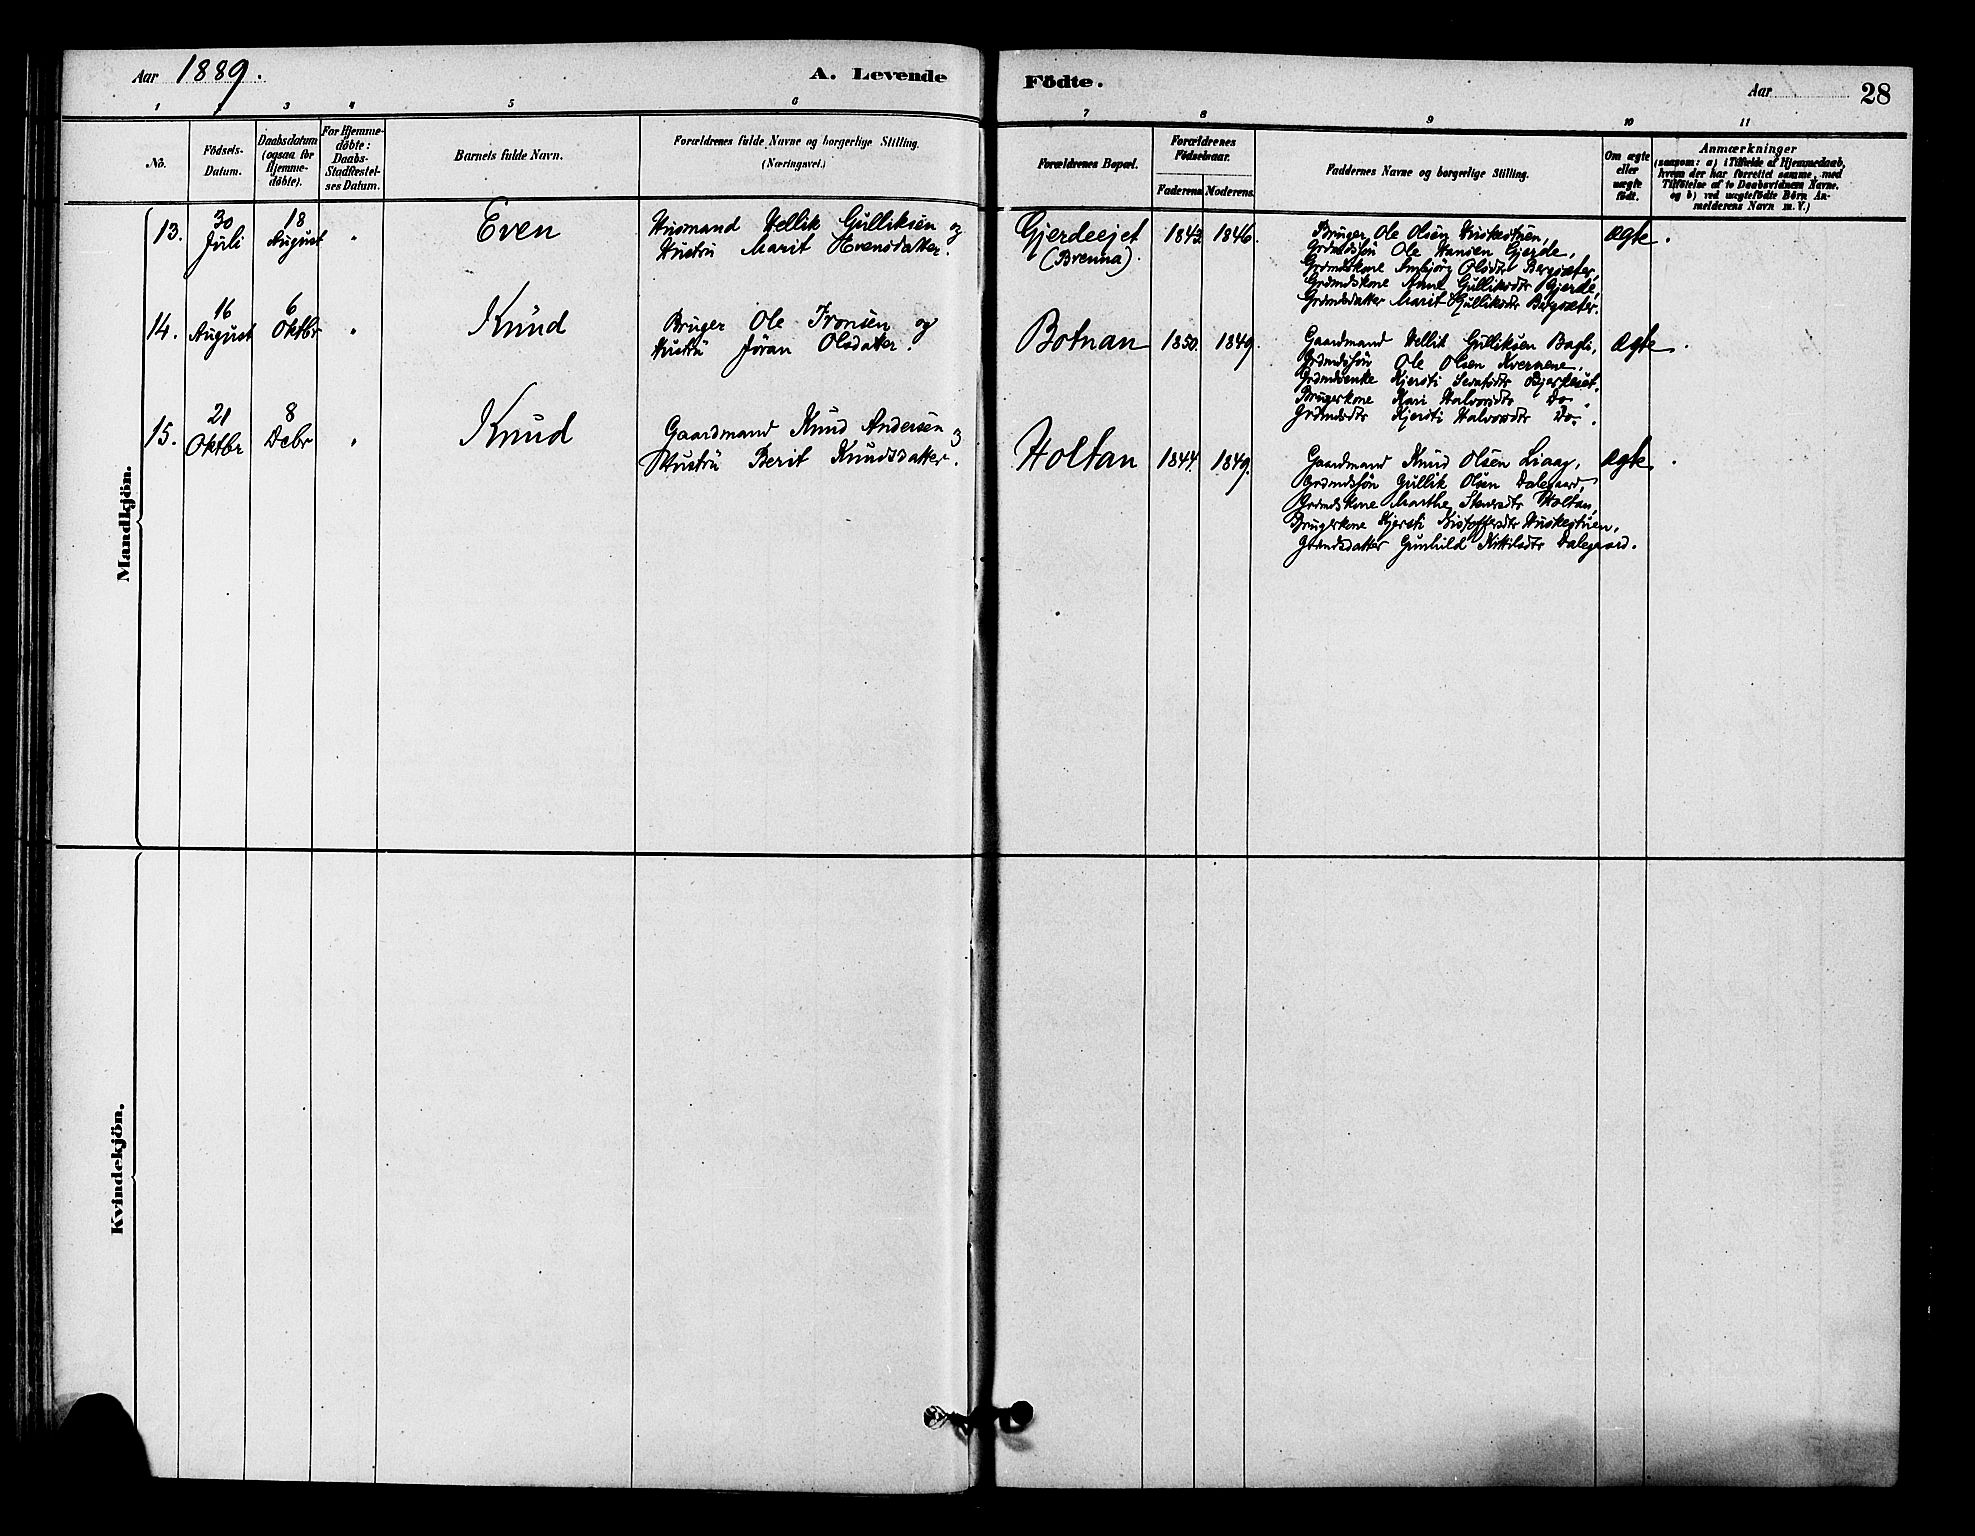 Aar 1889. A. Levende Födte. Aar 28
1 2 3 4 5 6 7 8 9 10 11
No.
Födsels-
Datum.
Daabsdatum
(ogsaa for
Hjemme-
döbte).
For Hjemme-
döbte:
Daabs-
Stadfæstel-
ses Datum.
Barnets fulde Navn.
Forældrenes fulde Navne og borgerlige Stilling.
(Næringsvei.)
Forældrenes Bopæl.
Forældrenes
Födselsaar.
Faderens. Moderens.
Faddernes Navne og borgerlige Stilling.
Om ægte
eller
uægte
födt.
Anmærkninger
(saasom: a) i Tilfælde af Hjemmedaab,
hvem der har forrettet samme, med
Tilföielse af to Daabsvidners Navne,
og b) ved uægtefödte Börn An-
melderens Navn m. V.)
Mandkjön.
13.
30
Juli
18
August
"
Even
Husmand Hellik Gulliksen og
Hustru Marit Evensdatter.
Gjerdeejet
(Brenna).
1843. 1846.
Bruger Ole Olsen Huskestuen,
Grdmdssøn Ole Hansen Gjerde,
Grdmdskone Ambjørg Olsdtr Bergsæter,
Grdmdskone Anne Gulliksdtr Gjerde,
Grdmdsdatter Marit Gulliksdtr Bergsæter.
ægte.
14.
16
August
6
Oktbr
"
Knud
Bruger Ole Tronsen og
Hustru Jøran Olsdatter.
Botnan
1850. 1849.
Gaardmand Hellik Gulliksen Bagli,
Grdmdssøn Ole Olsen Kvernene,
Grdmdsenke Kjersti Bjerkeset.
Brugerkone Kari Halvorsdtr Do.
Grdmdsdtr Kjersti Halvorsdtr Do.
ægte.
15.
21
Oktbr
8
Debr
"
Knud
Gaardmand Knud Andersen og
Hustru Berit Knudsdatter.
Holtan
1844. 1849.
Gaardmand Knud Olsen Liaag,
Grdmdssøn Gullik Olsen Dalegaard,
Grdmdskone Marthe Steursdtr Holtan,
Brugerkone Kjersti Kristoffersdtr Huskestuen,
Grdmdsdatter Gunhild Kittilsdtr Dalegaard.
ægte.
Kvindekjön.